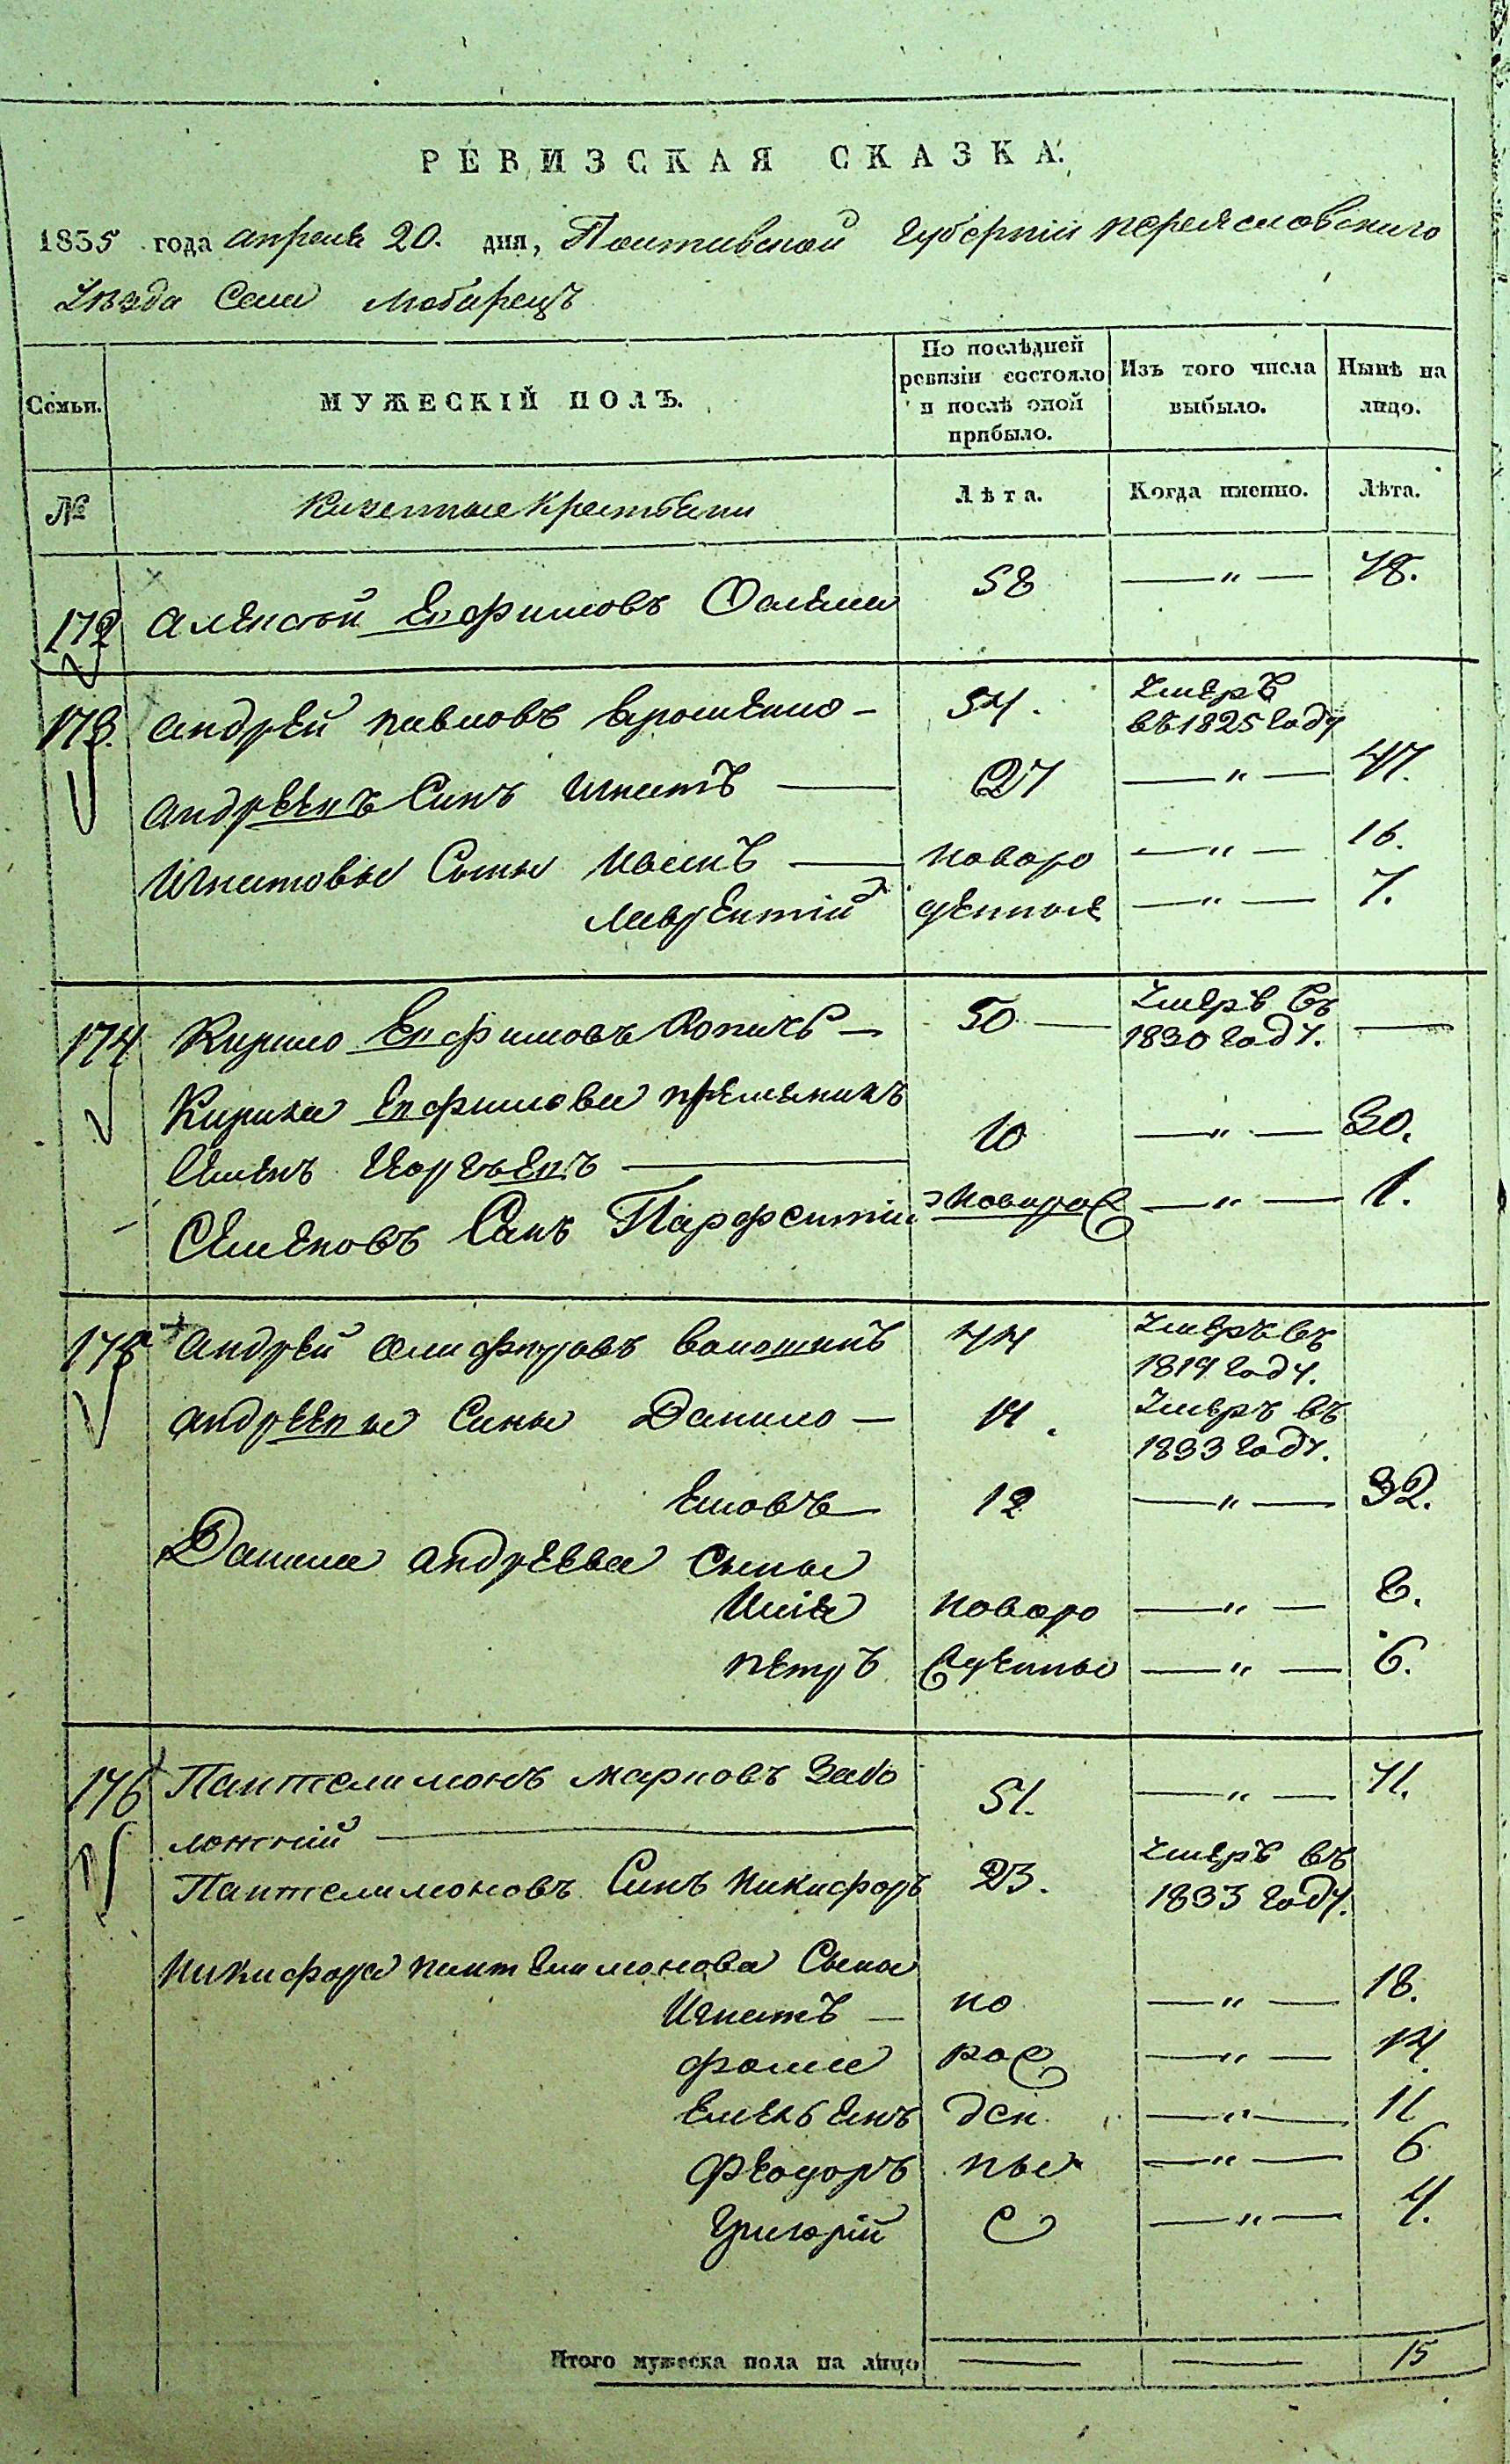 РЕВИЗСКАЯ СКАЗКА.
1835 года апреля 20. дня, Полтавской Губернiи переясловского
Уезда Села Любарецъ
Семьи.
МУЖЕСКІЙ ПОЛЪ.
По послѣдней ревизіи состояло и послѣ оной прибыло.
Изъ того числа выбыло.
Нынѣ на лицо.
№
Казенные Крестьяни
Лѣта.
Когда именно.
Лѣта.
172 Алексѣй Ефимовъ 58 —„— 78.
173. Андрей павловъ 54. Умеръ въ 1825 году
Андреевъ Синъ Игнатъ — 27 —„— 47.
Игнатовы Сыны — новоро —„— 16.
лаврентiй жденные —„— 7.
174 Кирило Евфимовъ — 50 — Умеръ въ 1830 году. —
Кирила Евфимова племеникъ
Семенъ — 10 —„— 30.
Семеновъ Синъ Парфентiй новорож —„— 1.
175 Андрей Волошинъ 44 Умеръ въ 1819 году.
Андреевы Сины Данило — 14. Умеръ въ 1833 году.
— 12 —„— 32.
Данила Андреева Сыны
Илiя новоро —„— 8.
петръ жденные —„— 6.
176 Пантелимонъ марковъ Забо
лотнiй — 51. —„— 71.
Пантелимоновъ Синъ Никифоръ 23. Умеръ въ 1833 году.
Никифора пантелимонова Сыны
Игнатъ — но —„— 18.
фома рож —„— 14.
Емельянъ ден —„— 11
Феодоръ ные —„— 6
Григорiй —„— 4.
Итого мужеска пола на лицо — — 15